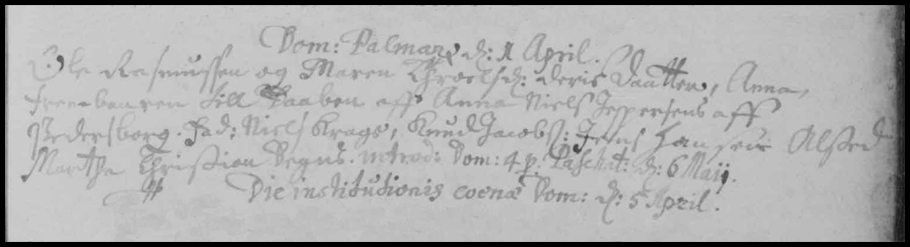 Dom: Palmar: d: 1 April.
Ole Rasmussen og Maren Throelsd: deris Daatter, Anna,
frembaaren till Daaben aff Anna Niels Jespersens aff
Pedersborg. Fad: Niels Krags, Knud Jacobs: Jens Hansen Alsted
Marthe Christian Degns. introd: Dom: 4 p. Paschat: d: 6 Maij.
Die institutionis coenæ Dom: d: 5 April.